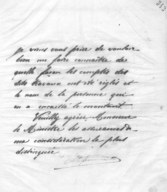 je vous prie de vouloir
bien me faire connaître de
quelle façon les comptes des
dits travaux ont été réglés et
le nom de la personne qui
en a encaissé le montant.
Veuillez agréer, Monsieur
le Ministre, les assurances de
ma considération la plus
distinguée